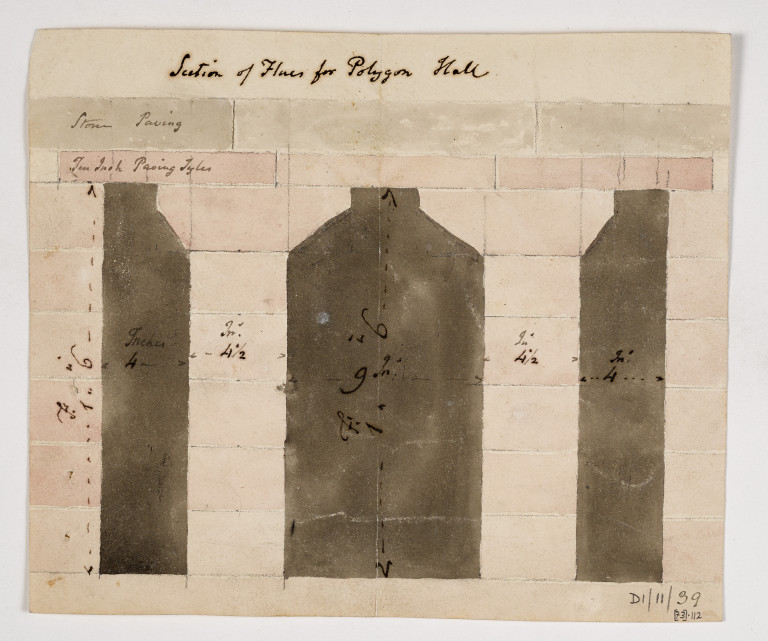 Section of Flues for Polygon Hall
Stone Paving
Ten Inch Paving Tyles
Inches
4
In.s
4½
In.s
4½
In.s
4
9 In.s
1" 6 in
1" 6 in
D1/11/39
[73]·112